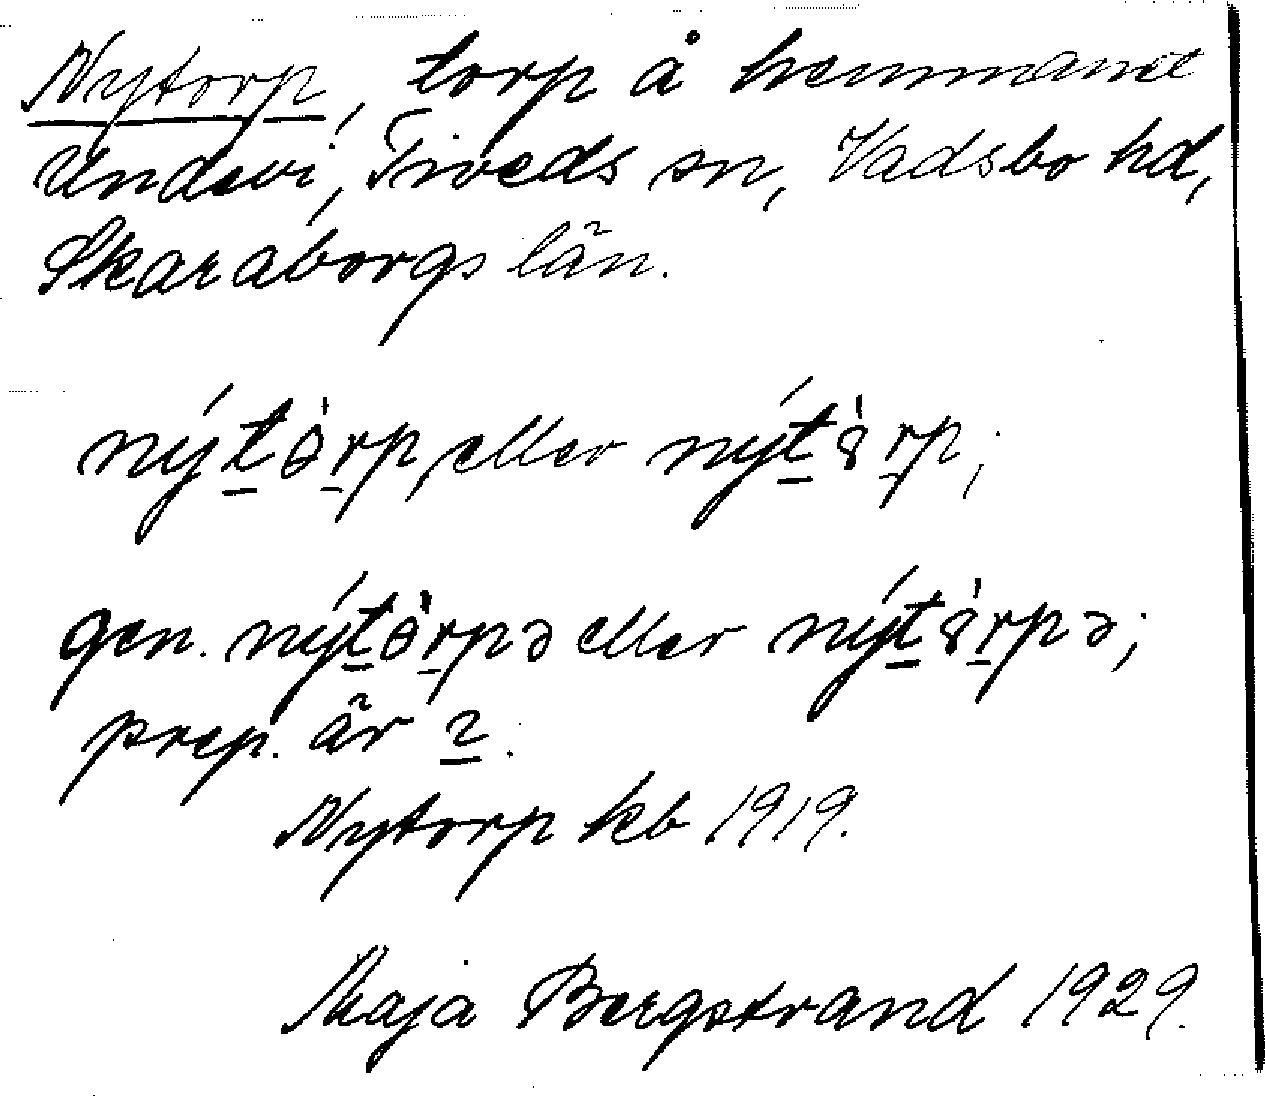 Nytorp, torp å hemmanet
Undevi, Tiveds sn, Vadsbo hd,
Skaraborgs län.
nýt̲ɵ̀r̲p, eller nýt̲8̀r̲p;
gen. nýt̲ɵ̀r̲pə eller nýt̲8̀r̲pə;
prep. är 2̲.
Nytorp kb 1919.
Maja Bergstrand 1929.